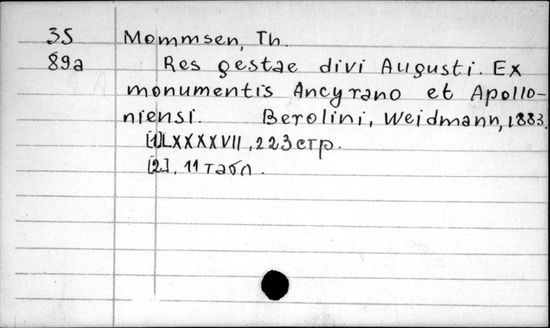 35 Mommsen, Th.
89a Res gestae divi Augusti. Ex
monumentis Ancyrano et Apollo-
niensi. Berolini, Weidmann, 1883.
[1] LXXXXVII, 223 стр.
[2], 11 табл.